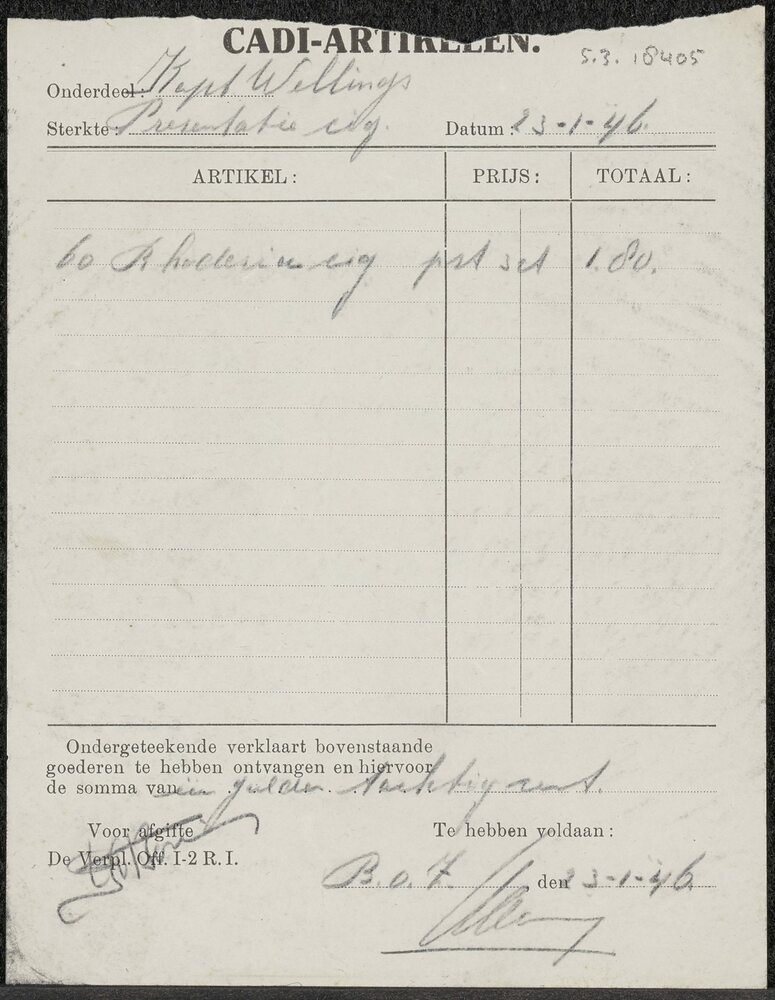 CADI-ARTIKELEN.
5.3. 18405
Onderdeel: Kapt Wellings
Sterkte: Presentatie cig. Datum: 23-1-46.
ARTIKEL: PRIJS: TOTAAL:
60 Rhodesia cig prt set 1.80.
Ondergeteekende verklaart bovenstaande
goederen te hebben ontvangen en hiervoor
de somma van een gulden tachtig cent.
Voor afgifte Te hebben voldaan:
De Verpl. Off. I-2 R. I.
B.o.Z. den 23-1-46